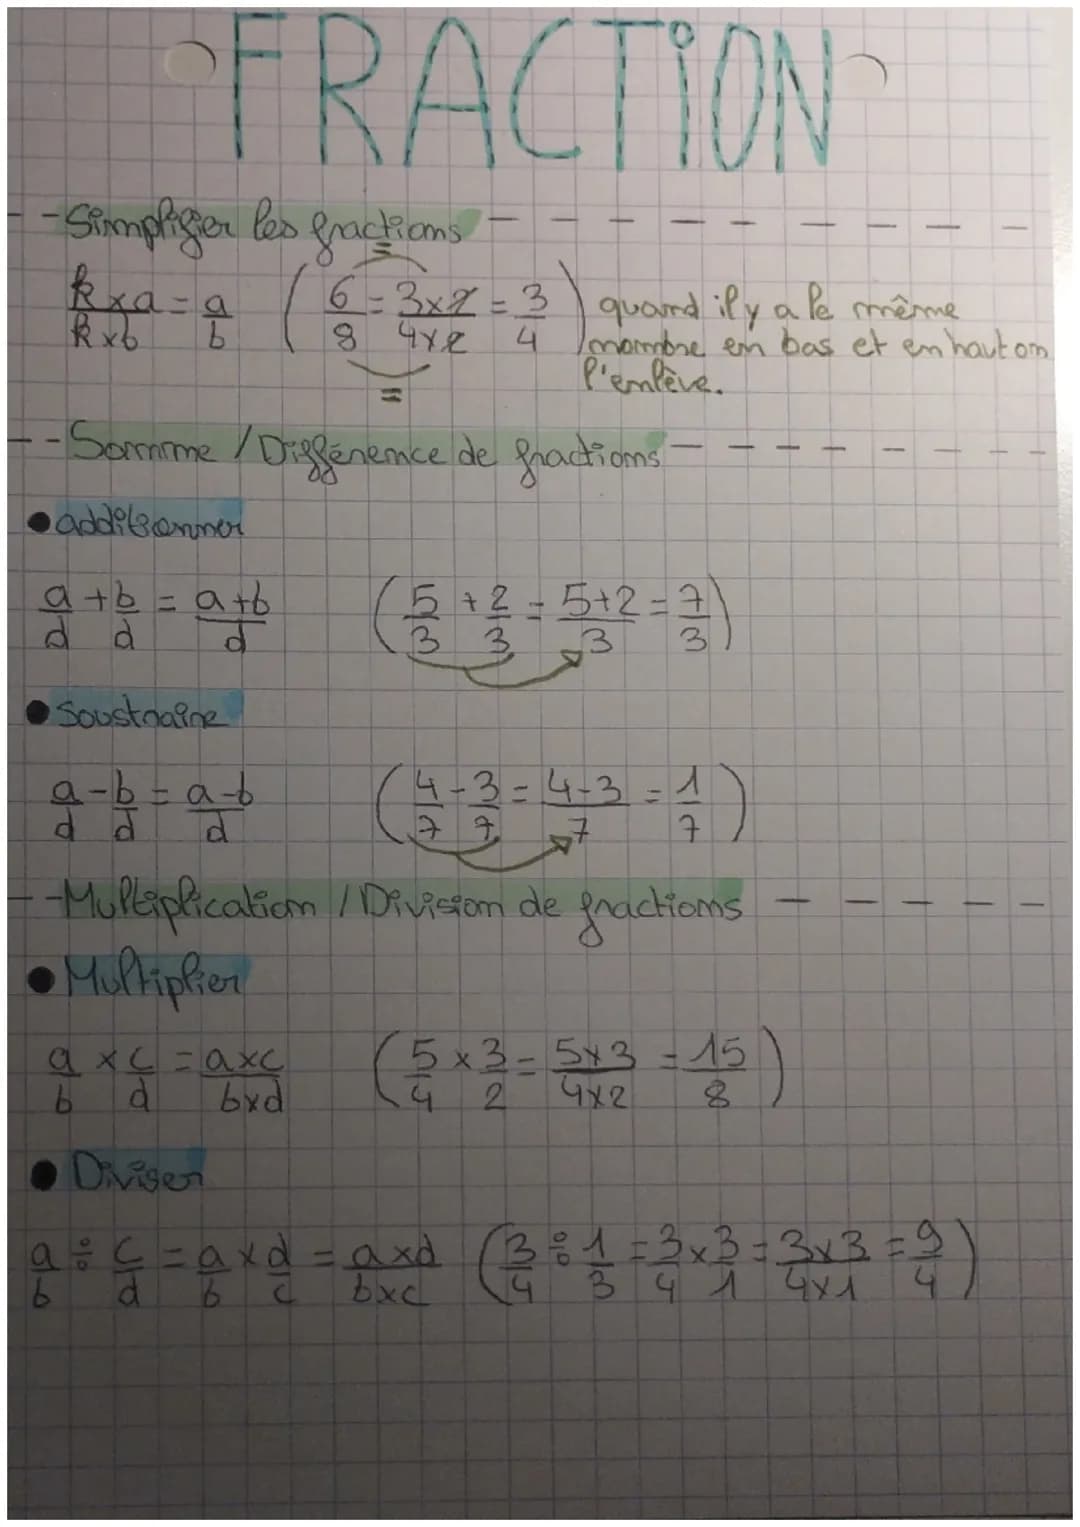 FRACTION
--Simplifier les fractions
k×a/k×b = a/b (6/8 = 3×2/4×2 = 3/4) quand il y a le même
nombre en bas et en haut on
l'enlève.
=
=
--Somme / Différence de fractions
● additionner
a/d + b/d = a+b/d (5/3 + 2/3 = 5+2/3 = 7/3)
● Soustraire
a/d - b/d = a-b/d (4/7 - 3/7 = 4-3/7 = 1/7)
--Multiplication / Division de fractions
● Multiplier
a/b × c/d = a×c/b×d (5/4 × 3/2 = 5×3/4×2 = 15/8)
● Diviser
a/b ÷ c/d = a/b × d/c = a×d/b×c (3/4 ÷ 1/3 = 3/4 × 3/1 = 3×3/4×1 = 9/4)